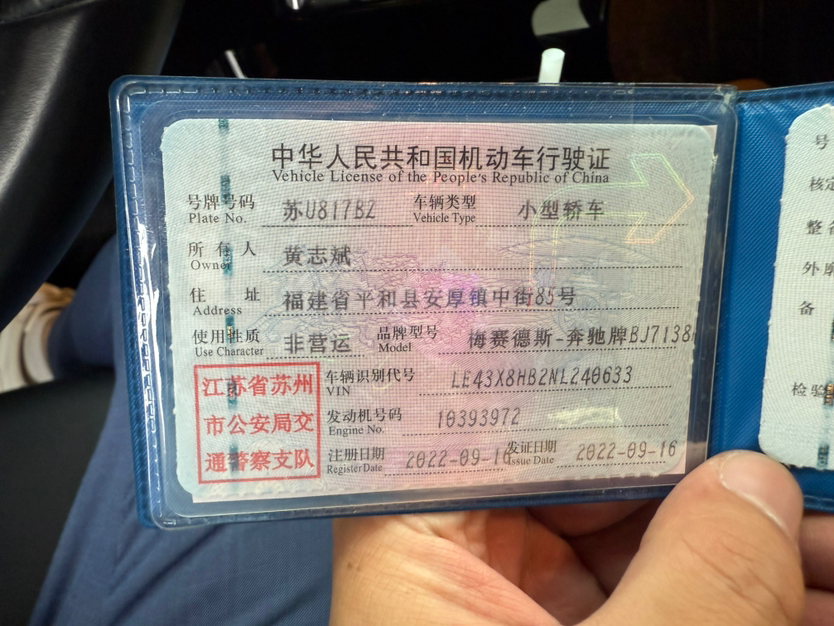 中华人民共和国机动车行驶证
Vehicle License of the People's Republic of China
号牌号码 苏U817B2 车辆类型 小型轿车
Plate No. Vehicle Type
所有人 黄志斌
Owner
住址 福建省平和县安厚镇中街85号
Address
使用性质 非营运 品牌型号 梅赛德斯-奔驰牌BJ7138
Use Character Model
江苏省苏州 车辆识别代号 LE43X8HB2NL240633
VIN
市公安局交 发动机号码 10393972
Engine No.
通警察支队 注册日期 2022-09-16 发证日期 2022-09-16
Register Date Issue Date
号
核定
整备
外廓
备
检验